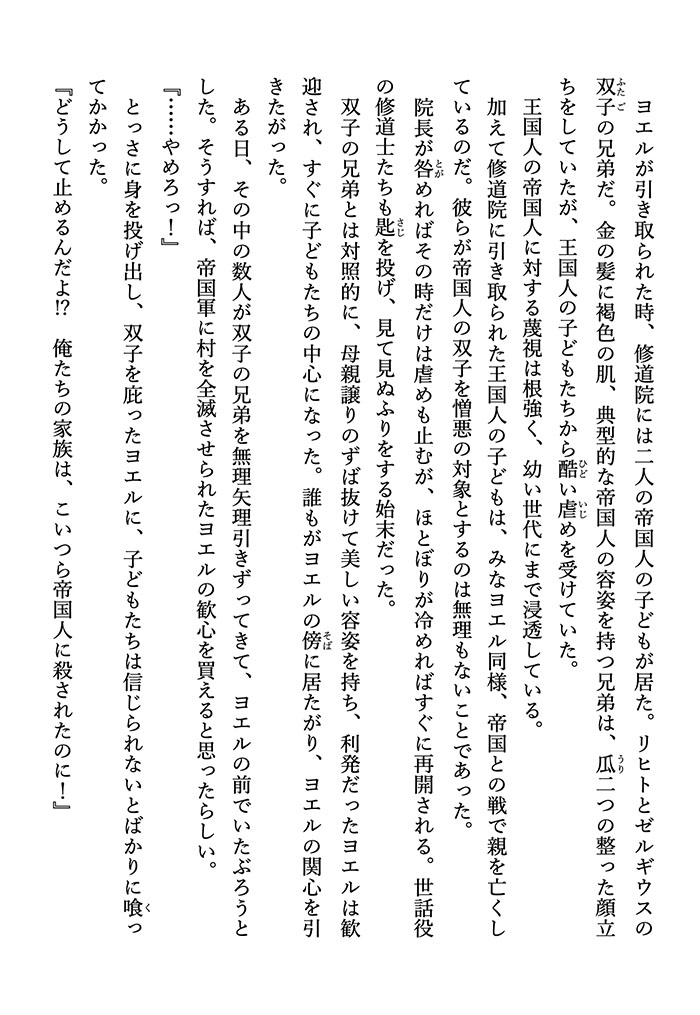 ヨエルが引き取られた時、修道院には二人の帝国人の子どもが居た。リヒトとゼルギウスの
双子の兄弟だ。金の髪に褐色の肌、典型的な帝国人の容姿を持つ兄弟は、瓜二つの整った顔立
ちをしていたが、王国人の子どもたちから酷い虐めを受けていた。
　王国人の帝国人に対する蔑視は根強く、幼い世代にまで浸透している。
　加えて修道院に引き取られた王国人の子どもは、みなヨエル同様、帝国との戦で親を亡くし
ているのだ。彼らが帝国人の双子を憎悪の対象とするのは無理もないことであった。
　院長が咎めればその時だけは虐めも止むが、ほとぼりが冷めればすぐに再開される。世話役
の修道士たちも匙を投げ、見て見ぬふりをする始末だった。
　双子の兄弟とは対照的に、母親譲りのずば抜けて美しい容姿を持ち、利発だったヨエルは歓
迎され、すぐに子どもたちの中心になった。誰もがヨエルの傍に居たがり、ヨエルの関心を引
きたがった。
　ある日、その中の数人が双子の兄弟を無理矢理引きずってきて、ヨエルの前でいたぶろうと
した。そうすれば、帝国軍に村を全滅させられたヨエルの歓心を買えると思ったらしい。
『……やめろっ！』
　とっさに身を投げ出し、双子を庇ったヨエルに、子どもたちは信じられないとばかりに喰っ
てかかった。
『どうして止めるんだよ!?　俺たちの家族は、こいつら帝国人に殺されたのに！』